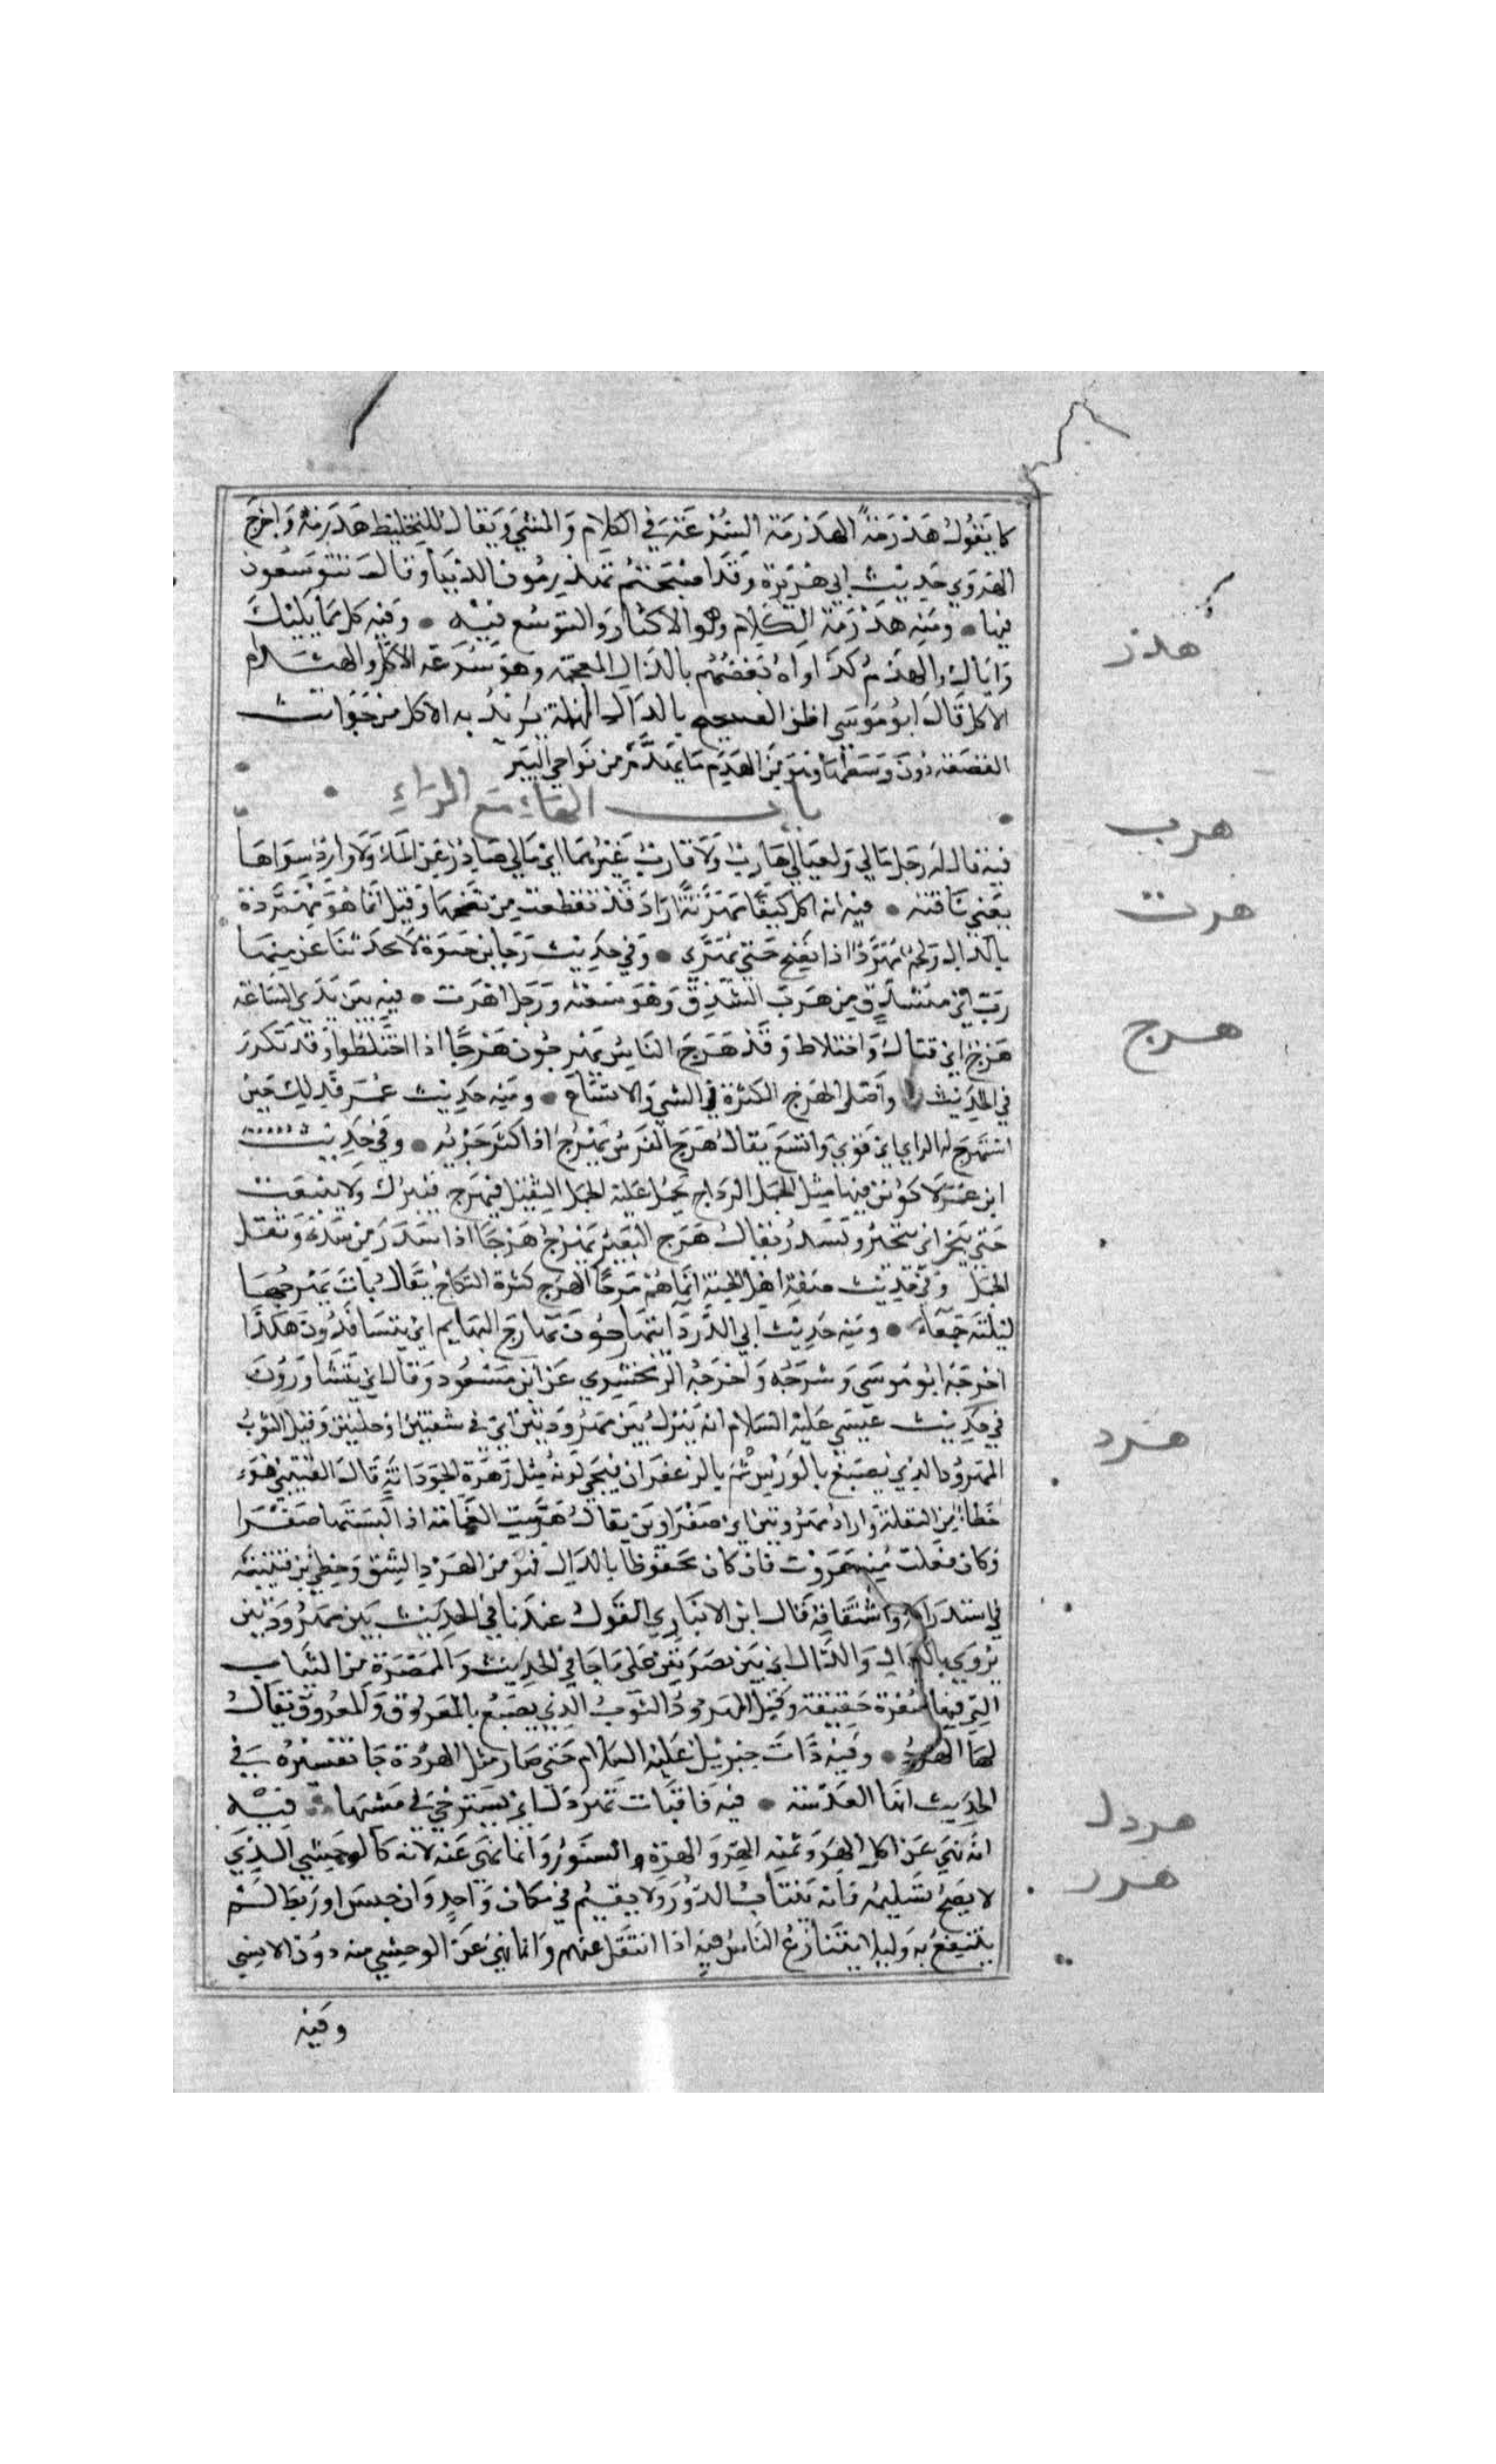 كما يقول هذرمة الهذرمة السرعة في الكلام والمشي ويقال للتخليط هذرمة واخرج
الهروي حديث ابي هريرة وقد اصبحتم تهذرمون الدنيا وقال تتوسعون
فيها ومنه هذرمة الكلام وهو الاكثار والتوسع فيه وفيه كل مما يليك
واياك والهذم كذا رواه بعضهم بالذال المعجمة وهو سرعة الاكل والهيثام
الاكل قال ابو موسي اظن الصحيح بالدال المهملة يريد به الاكل من جوانب
القصعة دون وسطها وهو من الهدم ما تهدم من نواحي البير
باب الهاء مع الراء
فيه قال له رجل مالي ولعيالي هارب ولا قارب غيرهما اي مالي صادر عن الماء ولا وارد سواها
يعني ناقته فيه انه اكل كتفا مهرتة اراد قد تقطعت من نضجها وقيل انما هو مهردة
بالدال ولحم مهرد اذا نضج حتي تهرى وفي حديث رجا بن حيوة لا تحدثنا عن متها
رت اي متشدق من هرت الشدق وهو سعته ورجل اهرت فيه بين يدي الساعة
هرج اي قتال واختلاط وقد هرج الناس يهرجون هرجا اذا اختلطوا وقد تكرر
في الحديث واصل الهرج الكثرة في الشي والاتساع ومنه حديث عمر فذلك حين
استهرج له الراي اي قوي واتسع يقال هرج الفرس يهرج اذا كثر جريه وفي حديث
ابن عمر لاكونن فيها مثل الجمل الرداح يحمل عليه الحمل الثقيل فيهرج فيبرك ولا ينبعث
حتي ينحر اي يتحير ويسدر يقال هرج البعير يهرج هرجا اذا سدر من شدة وثقل
الحمل وفي حديث صفة اهل الجنة انما هم هرجا الهرج كثرة النكاح يقال بات يهرجها
ليلته جمعاء ومنه حديث ابي الدردا يتهارجون تهارج البهايم اي يتسافدون هكذا
اخرجه ابو موسي وشرحه واخرجه الزمخشري عن ابن مسعود وقال اي يتشاورون
في حديث عيسي عليه السلام انه ينزل بين مهرودتين اي في شقتين او حلتين وقيل الثوب
المهرود الذي يصبغ بالورس ثم بالزعفران فيجي لونه مثل زهرة الحوذانة قال القتيبي هو
خطا من النقلة واراه مهروتين اي صفراوين يقال هريت العمامة اذا لبستها صفرا
وكان فعلت منه هروت فان كان محفوظا بالدال فهو من الهرد الشق وخطئ ابن قتيبة
في استدراكه واشتقاقه قال ابن الانباري القول عندنا في الحديث بين مهرودتين
يروي بالدال والذال اي بين ممصرتين علي ما جا في الحديث والممصرة من الثياب
التي فيها صفرة خفيفة وقيل المهرود الثوب الذي يصبغ بالعروق والعروق يقال
لها الهرد وفيه ذاب جبريل عليه السلام حتى صار مثل الهردة جا تفسيره في
الحديث انها العدسة فيه فاقبلت تهردل اي تسترخي في مشيها فيه
انه نهي عن اكل الهر وثمنه الهر والهرة والسنور وانما نهي عنه لانه كالوحشي الذي
لا يصح تسليمه فانه ينتاب الدور ولا يقيم في مكان واحد وان حبس او ربط لم
ينتفع به وليلا يتنازع الناس فيه اذا انتقل عنهم وانما نهي عن الوحشي منه دون الانسي
وفيه
هذر
هرب
هرت
هرج
هرد
هردل
هرر